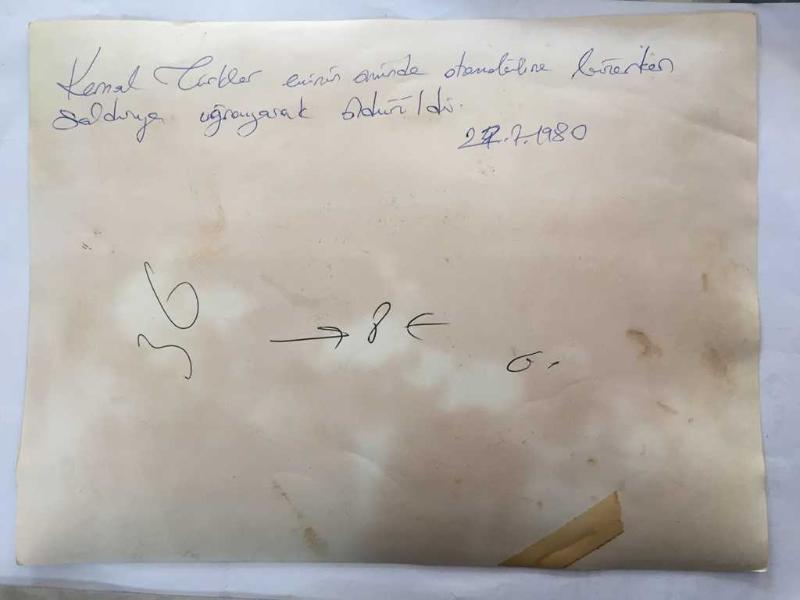 Kemal Türkler evinin önünde otomobiline binerken
saldırıya uğrayarak öldürüldü.
22.7.1980
36
→ 8 ←
6.